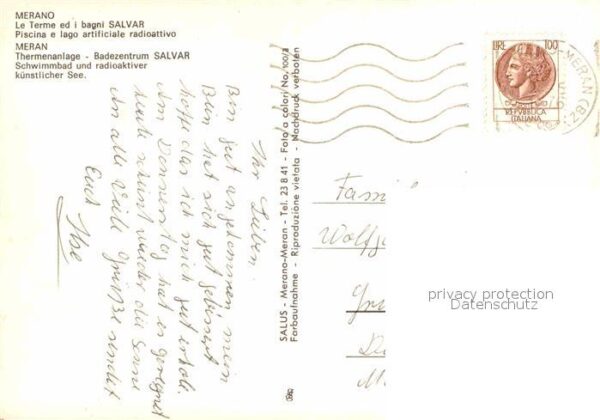 MERANO
Le Terme ed i bagni SALVAR
Piscina e lago artificiale radioattivo
MERAN
Thermenanlage - Badezentrum SALVAR
Schwimmbad und radioaktiver
künstlicher See.
Ihr Lieben.
Bin gut angekommen mein
Bein hat sich gut gebessert
hoffe das ich mich gut erhole.
Am Donnerstag hat es geregnet
heute scheint wieder die Sonne
An alle viele Grüße sendet
Euch
Ilse
SALUS - Merano-Meran - Tel. 23 8 41 - Foto a colori No. 100/2
Farbaufnahme - Riproduzione vietata - Nachdruck verboten
LIRE 100
REPVBBLICA
ITALIANA
MERAN
(BZ)
Fami
Wolfg
privacy protection
Datenschutz